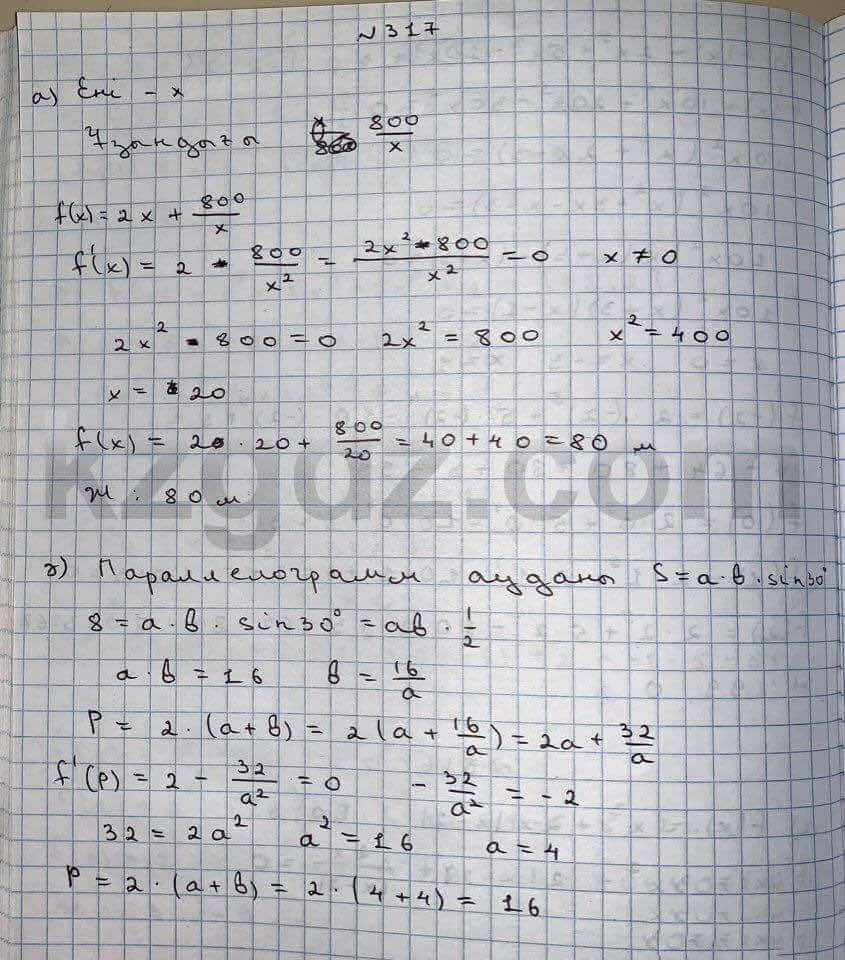 №317
а) Ені - x
Ұзындығы 800/x
f(x) = 2x + 800/x
f'(x) = 2 - 800/x² = (2x² - 800)/x² = 0 x ≠ 0
2x² - 800 = 0 2x² = 800 x² = 400
x = 20
f(x) = 2 · 20 + 800/20 = 40 + 40 = 80 м
Ж: 80 м
kzgdz.com
б) Параллелограмм ауданы S = a · b · sin30°
8 = a · b · sin30° = ab · 1/2
a · b = 16 b = 16/a
P = 2 · (a + b) = 2(a + 16/a) = 2a + 32/a
f'(p) = 2 - 32/a² = 0 - 32/a² = -2
32 = 2a² a² = 16 a = 4
P = 2 · (a + b) = 2 · (4 + 4) = 16